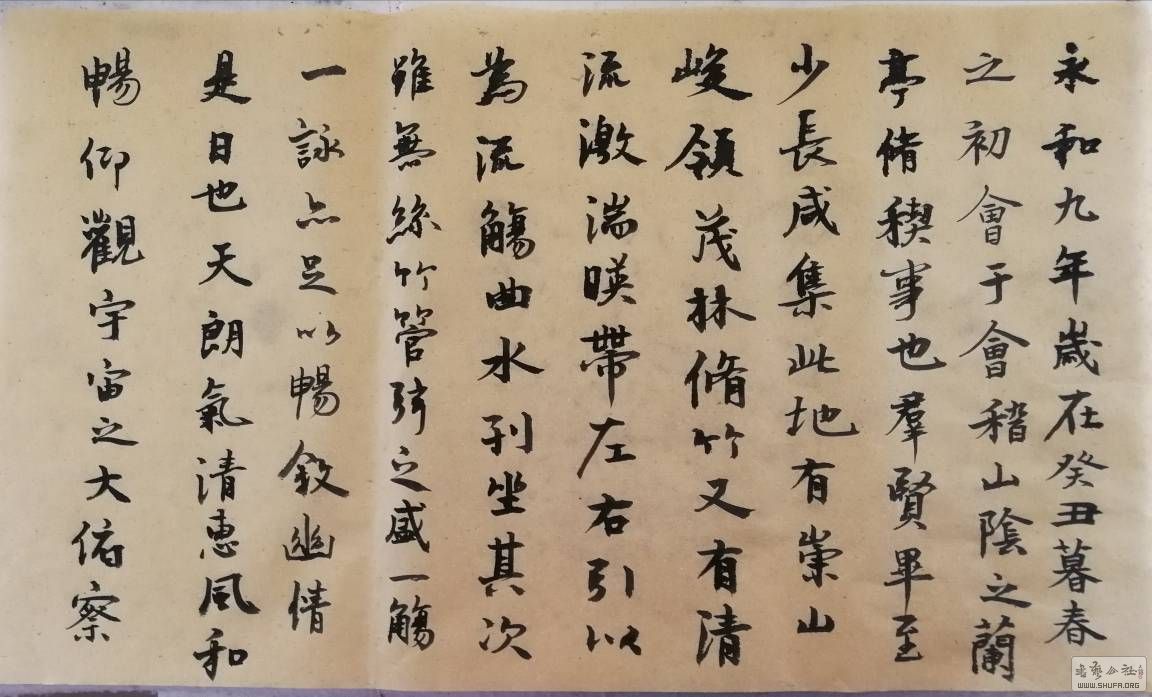 永和九年歲在癸丑暮春
之初會于會稽山陰之蘭
亭脩稧事也羣賢畢至
少長咸集此地有崇山
峻領茂林脩竹又有清
流激湍暎帶左右引以
為流觴曲水列坐其次
雖無絲竹管弦之盛一觴
一詠亦足以暢敘幽情
是日也天朗氣清惠風和
暢仰觀宇宙之大俯察
WWW.SHUFA.ORG